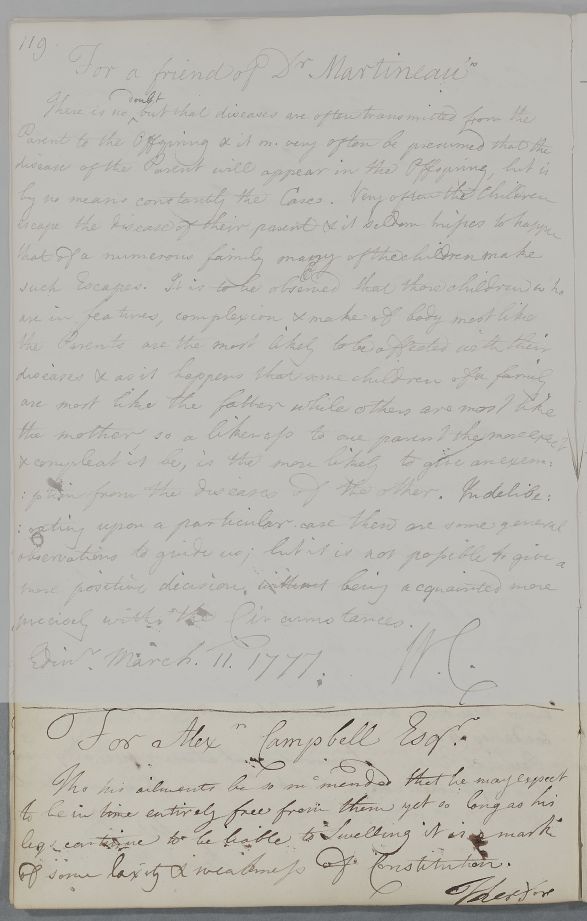 119.
For a friend of Dr Martineau's
doubt
There is no but that diseases are often transmitted from the
Parent to the Offspring & it m. very often be presumed that the
disease of the Parent will appear in the Offspring, but is
by no means constantly the Case. Very often the Children
escape the disease of their parent & it seldom happens
that of a numerous family many of the children make
such Escapes. It is to be observed that those children who
are in features, complexion & make of body most like
the Parents are the most likely to be affected with their
diseases & as it happens that some children of a family
are most like the father while others are most like
the mother so a likeness to one parent the more exact
& compleat it be, is the more likely to give an exem:
:ption from the diseases of the other. In delibe:
:rating upon a particular case there are some general
observations to guide us; but it is not possible to give a
more positive decision, without being acquainted more
precisely with the Circumstances.
Edinr. March. 11. 1777. W.C.
For Alexr Campbell Esqr.
Tho his ailments be so mh mended that he may expect
to be in time entirely free from them yet so long as his
legs continue to be liable to Swelling it is a mark
of some laxity & weakness of Constitution.
Therefore